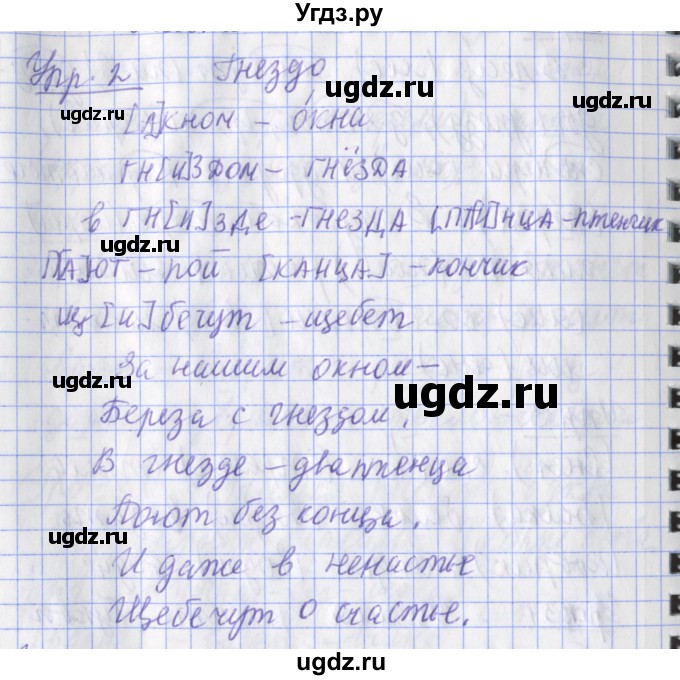 Угдз.ру
Упр. 2 Гнездо
ugdz.ru
ugdz.ru
[А]кном – о́кна
гн[и]здом – гнёзда
ugdz.ru
в гн[и]зде – гнезда [пт[и]нца – птенчик
ugdz.ru
П[А]ют – пой [канца] – кончик
ugdz.ru
щ[и]бечут – щебет
За нашим окном –
ugdz.ru
ugdz.ru
Береза с гнездом.
В гнезде – два птенца
ugdz.ru
Поют без конца.
ugdz.ru
И даже в ненастье
ugdz.ru
Щебечут о счастье.
ugdz.ru